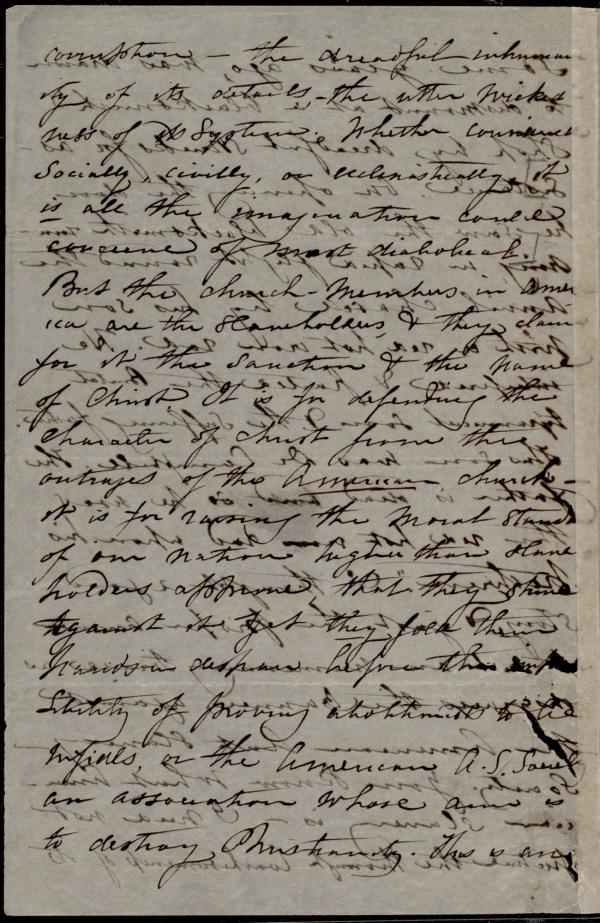 corruption – the dreadful inhuman
ity of its details – the utter wicked
ness of its System. Whether
Socially, civilly, or ecclesiastically, it
is all the imagination could
conceive of most diabolical.
But the church-members in Amer
ica are the slaveholders, & they claim
for it the sanction & the name
of Christ. It is for defending the
character of Christ from the
outrages of the American church –
it is for raising the moral stand
of our nation higher than slave
holders approve, that they
against it yet they fold their
hands in despair before the
sibility of proving abolitionists to be
infidels, or the American A.S. Socie
an association whose aim is
to destroy Christianity. This is an